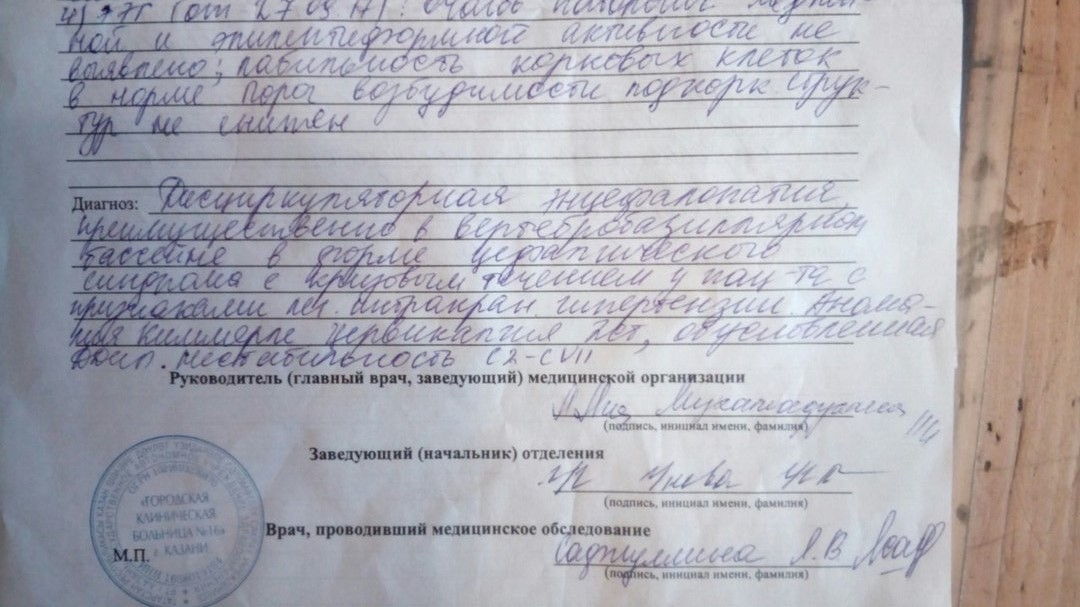 4) ЭЭГ (от 27 03 17): очагов
ной и эпилептиформной активности не
выявлено; лабильность корковых клеток
в норме Порог возбудимости подкорк. струк-
тур не снижен
Диагноз: Дисциркуляторная энцефалопатия,
преимущественно в вертебробазиллярном
бассейне в форме цефалгического
синдрома с кризовым течением у пац-та с
признаками интракран. гипертензии. Анома-
лия Киммерле Цервикалгия обусловленная
нестабильность C2-CVII
Руководитель (главный врач, заведующий) медицинской организации
(подпись, инициал имени, фамилия)
Заведующий (начальник) отделения
(подпись, инициал имени, фамилия)
Врач, проводивший медицинское обследование
(подпись, инициал имени, фамилия)
М.П.
«ГОРОДСКАЯ
КЛИНИЧЕСКАЯ
БОЛЬНИЦА №16»
г. КАЗАНИ